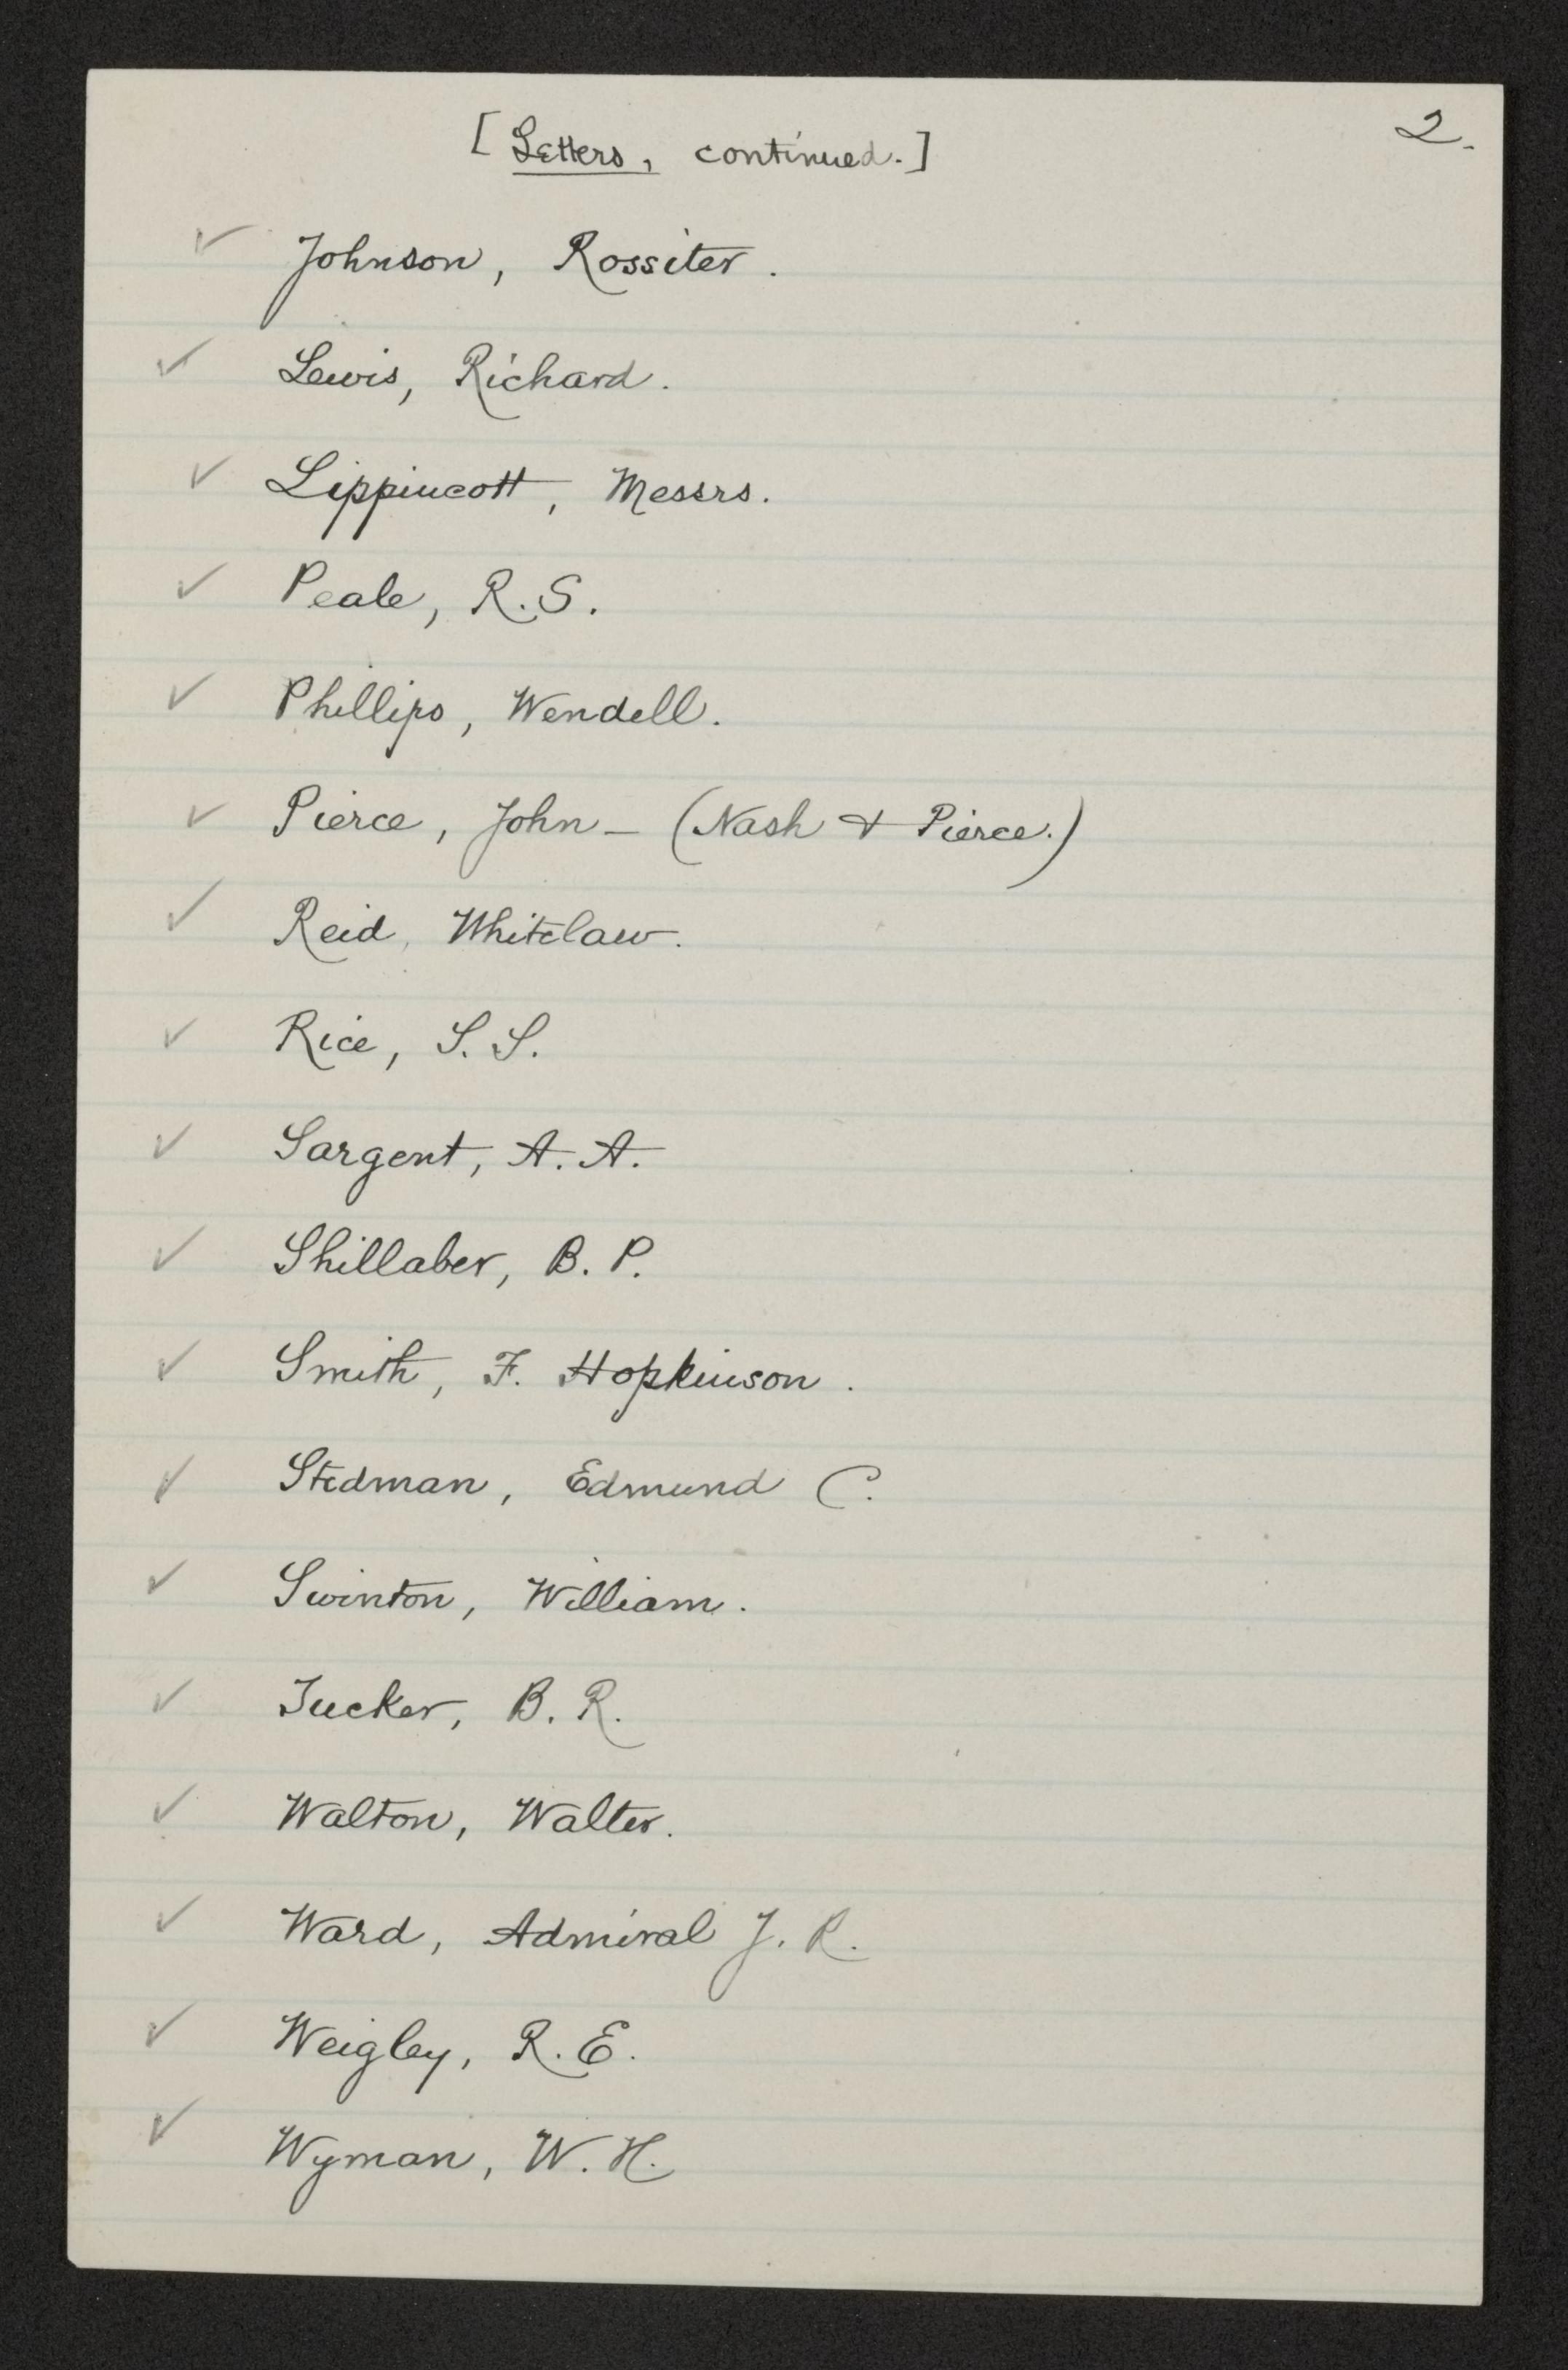 [Letters, continued.]
2.
✓ Johnson, Rossiter.
✓ Lewis, Richard.
✓ Lippincott, Messrs.
✓ Peale, R.S.
✓ Phillips, Wendell.
✓ Pierce, John – (Nash & Pierce.)
✓ Reid, Whitelaw.
✓ Rice, S. S.
✓ Sargent, A. A.
✓ Shillaber, B. P.
✓ Smith, F. Hopkinson.
✓ Stedman, Edmund C.
✓ Swinton, William.
✓ Tucker, B. R.
✓ Walton, Walter.
✓ Ward, Admiral J. R.
✓ Weigley, R. E.
✓ Wyman, W. H.